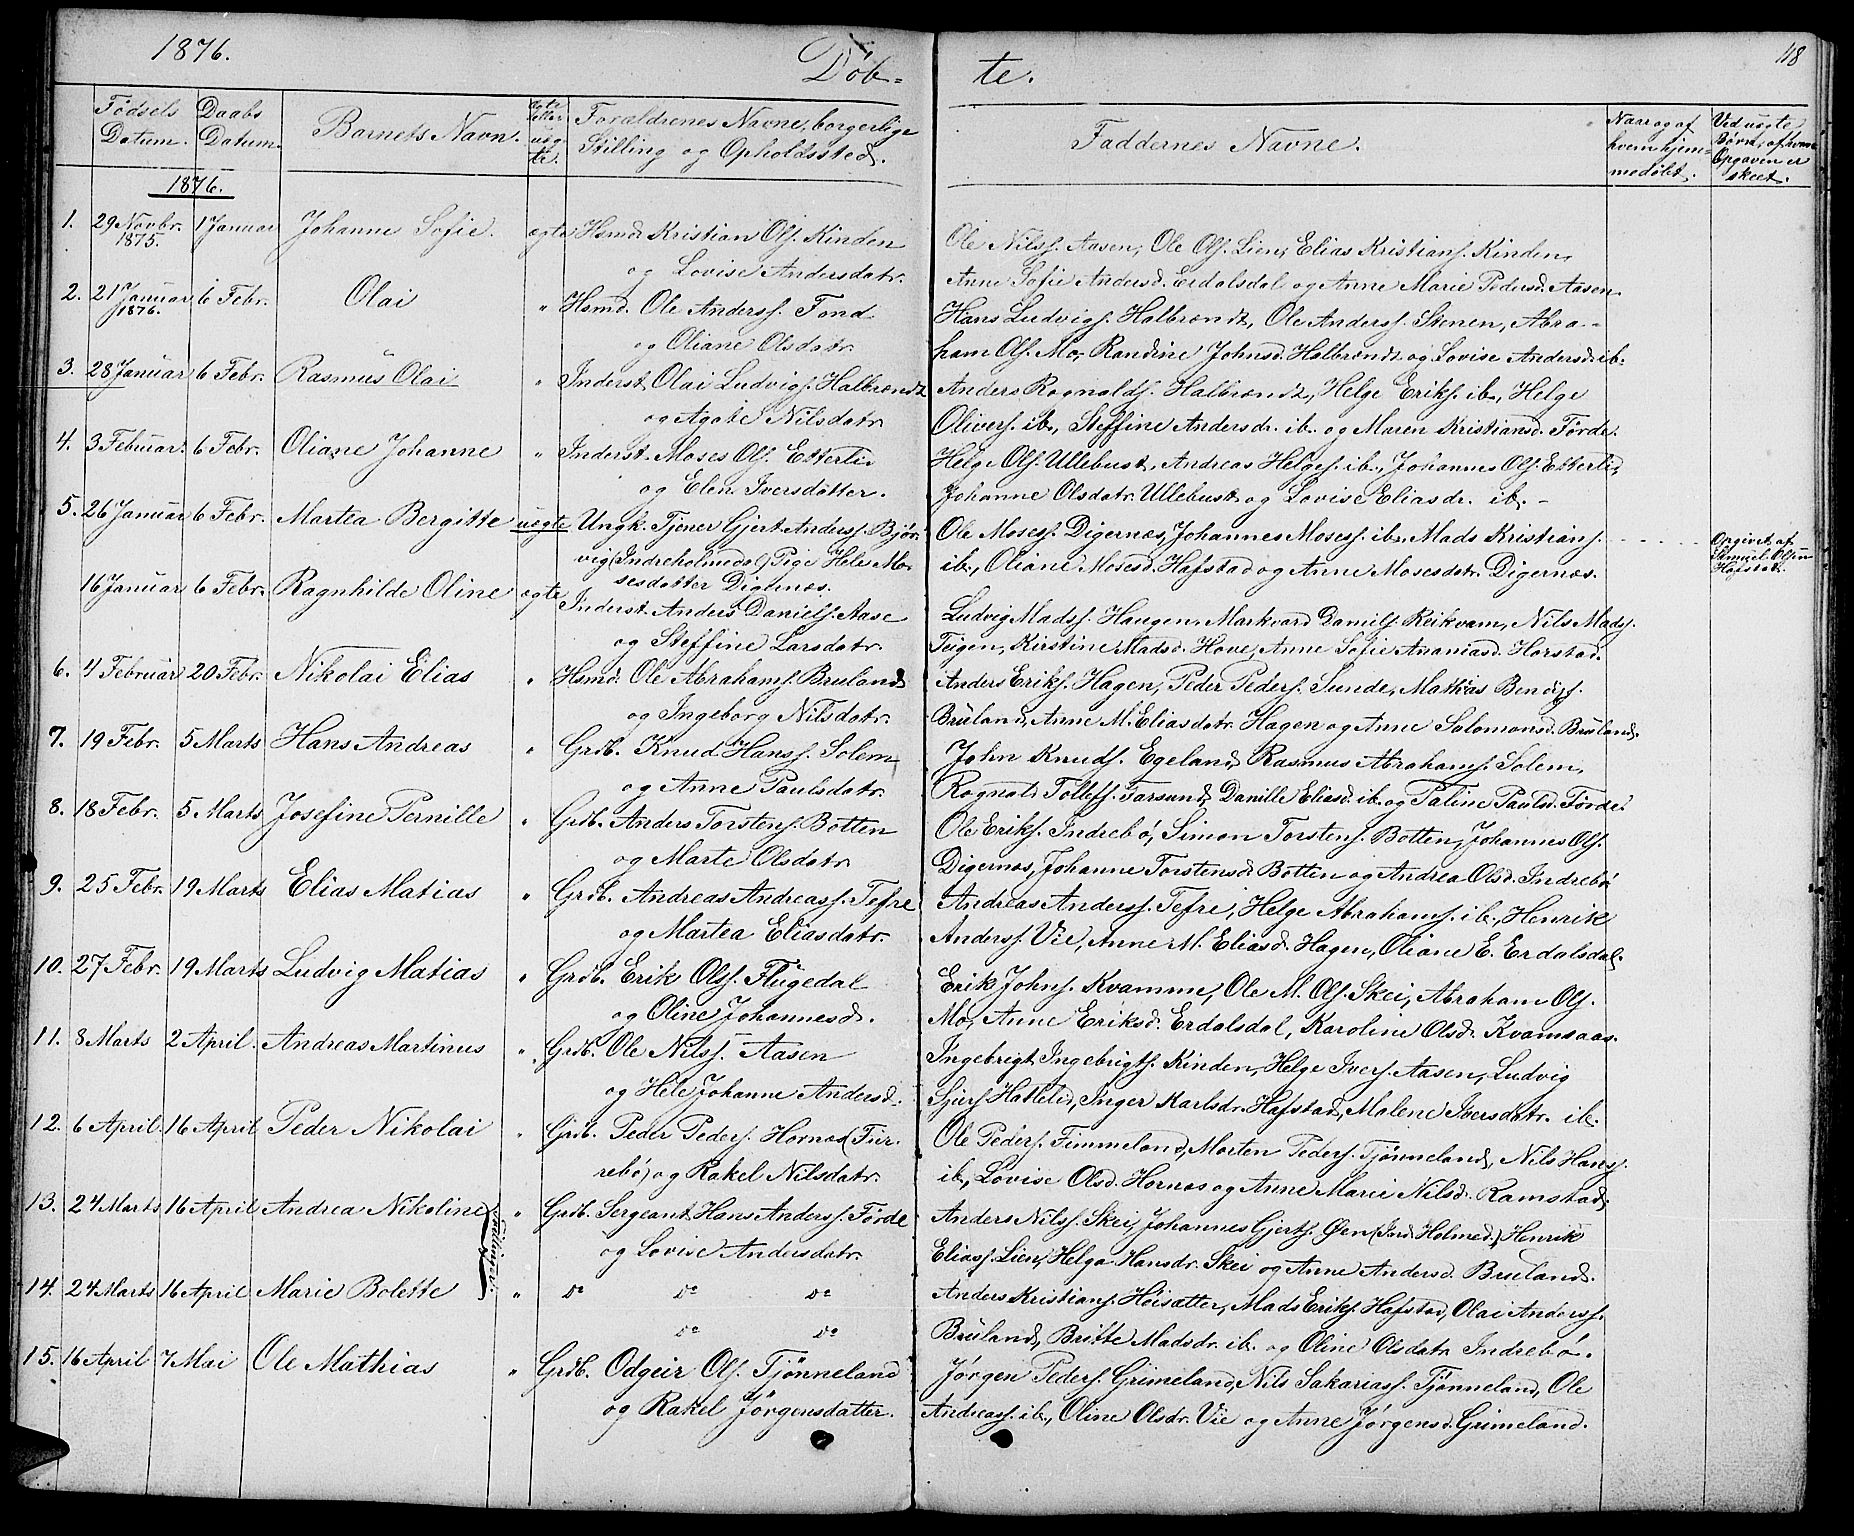 1876.
Døb-
te.
118
Fødsels Datum.
Daabs Datum.
Barnets Navn.
ægte eller uæg- te.
Forældrenes Navne, borgerlige Stilling og Opholdssted.
Faddernes Navne.
Naar og af hvem hjem- medøbt.
Ved uægte Børn, af hvem Opgaven er skeet.
1876.
1. 29 Novbr. 1875. 1 Januar Johanne Sofie. ægte Hsmd. Kristian Ols. Kinden
og Lovise Andersdatr.
Ole Nilss. Aasen, Ole Ols. Lien, Elias Kristians. Kinden,
Anne Sofie Andersd. Erdalsdal og Anne Marie Pedersd. Aasen.
2. 21 Januar 1876. 6 Febr. Olai " Hsmd. Ole Anderss. Fond
og Oliane Olsdatr.
Hans Ludvigs. Halbrendt, Ole Anderss. Stenen, Abra-
ham Ols. Mo, Randine Johnsd. Halbrendt og Lovise Andersd. ib.
3. 28 Januar 6 Febr. Rasmus Olai " Inderst. Olai Ludvigs. Halbrendt
og Agate Nilsdatr.
Anders Rognalds. Halbrendt, Helge Eriks. ib., Helge
Olivers. ib., Steffine Andersdr. ib. og Maren Kristiansd. Førde.
4. 3 Februar. 6 Febr. Oliane Johanne " Inderst. Moses Ols. Etterli
og Elen Iversdatter.
Helge Ols. Ullebust, Andreas Helges. ib., Johannes Ols. Etterli,
Johanne Olsdatr. Ullebust og Lovise Eliasdr. ib. -
5. 26 Januar 6 Febr. Martea Bergitte uægte Ungk. Tjener Gjert Anderss. Bjør-
vig (Indreholmedal) Pige Hele Mo-
sesdatter Digernæs.
Ole Moses. Digernæs, Johannes Moses. ib., Mads Kristians.
ib., Oliane Mosesd. Hafstad og Anne Mosesdatr. Digernæs.
Opgivet af Samuel Olsen Hafstad.
16 Januar 6 Febr. Ragnhilde Oline ægte Inderst. Anders Daniels. Aase
og Steffine Larsdatr.
Ludvig Mads. Haugen, Markvard Daniels. Reikvam, Nils Mads.
Teigen, Kirstine Madsd. Hove, Anne Sofie Ananiasd. Harstad.
6. 4 Februar 20 Febr. Nikolai Elias " Hsmd. Ole Abrahams. Bruland
og Ingeborg Nilsdatr.
Anders Eriks. Hagen, Peder Peders. Sunde, Mathias Bendiks.
Bruland, Anne M. Eliasdatr. Hagen og Anne Solomonsd. Bruland.
7. 19 Febr. 5 Marts Hans Andreas " Grdb. Knud Hanss. Solem
og Anne Paulsdatr.
John Knuds. Egeland, Rasmus Abrahams. Solem,
Rognald Tollefs. Farsund, Danille Eliasd. ib. og Paline Paulsd. Førde.
8. 18 Febr. 5 Marts Josefine Pernille " Grdb. Anders Torstens. Botten
og Marte Olsdatr.
Ole Eriks. Indrebø, Simon Torstens. Botten, Johannes Ols.
Digernæs, Johanne Torstensd. Botten og Andrea Olsd. Indrebø
9. 25 Febr. 19 Marts Elias Matias " Grdb. Andreas Andreass. Tefre
og Martea Eliasdatr.
Andreas Anderss. Tefre, Helge Abrahams. ib., Henrik
Anderss. Vie, Anne M. Eliasd. Hagen, Oliane E. Erdalsdal.
10. 27 Febr. 19 Marts Ludvig Matias " Grdb. Erik Ols. Flugedal
og Oline Johannesd.
Erik Johns. Kvamme, Ole M. Ols. Skei, Abraham Ols.
Mo, Anne Eriksd. Erdalsdal, Karoline Olsd. Kvamsaas.
11. 8 Marts 2 April. Andreas Martinus " Grdb. Ole Nilss. Aasen
og Hele Johanne Andersd.
Ingebrigt Ingebrigts. Kinden, Helge Ivers. Aasen, Ludvig
Sjurs. Hatlelid, Inger Karlsdr. Hafstad, Malene Iversdatr. ib.
12. 6 April. 16 April Peder Nikolai " Grdb. Peder Peders. Hornæs (Fur-
rebø) og Rakel Nilsdatr.
Ole Peders. Fimmeland, Morten Peders. Tjønneland, Nils Hans.
ib., Lovise Olsd. Hornæs og Anne Marie Nilsd. Ramstad
13. 24 Marts 16 April Andrea Nikoline Tvillinger. " Grdb. Sergeant Hans Anderss. Førde
og Lovise Andersdatr.
Anders Nilss. Skei, Johannes Gjerts. Øen (Ind. Holmed.) Henrik
Elias. Lien, Helga Hansdr. Skei og Anne Andersd. Bruland.
14. 24 Marts 16 April Marie Bolette " do do do
do do
Anders Kristians. Høisæter, Mads Eriks. Hafstad, Olai Anderss.
Bruland, Britte Madsdr. ib. og Oline Olsdatr. Indrebø.
15. 16 April 7 Mai Ole Mathias " Grdb. Odgeir Ols. Tjønneland
og Rakel Jørgensdatter.
Jørgen Peders. Grimeland, Nils Sakariass. Tjønneland, Ole
Andreass. ib., Oline Olsdr. Vie og Anne Jørgensd. Grimeland.